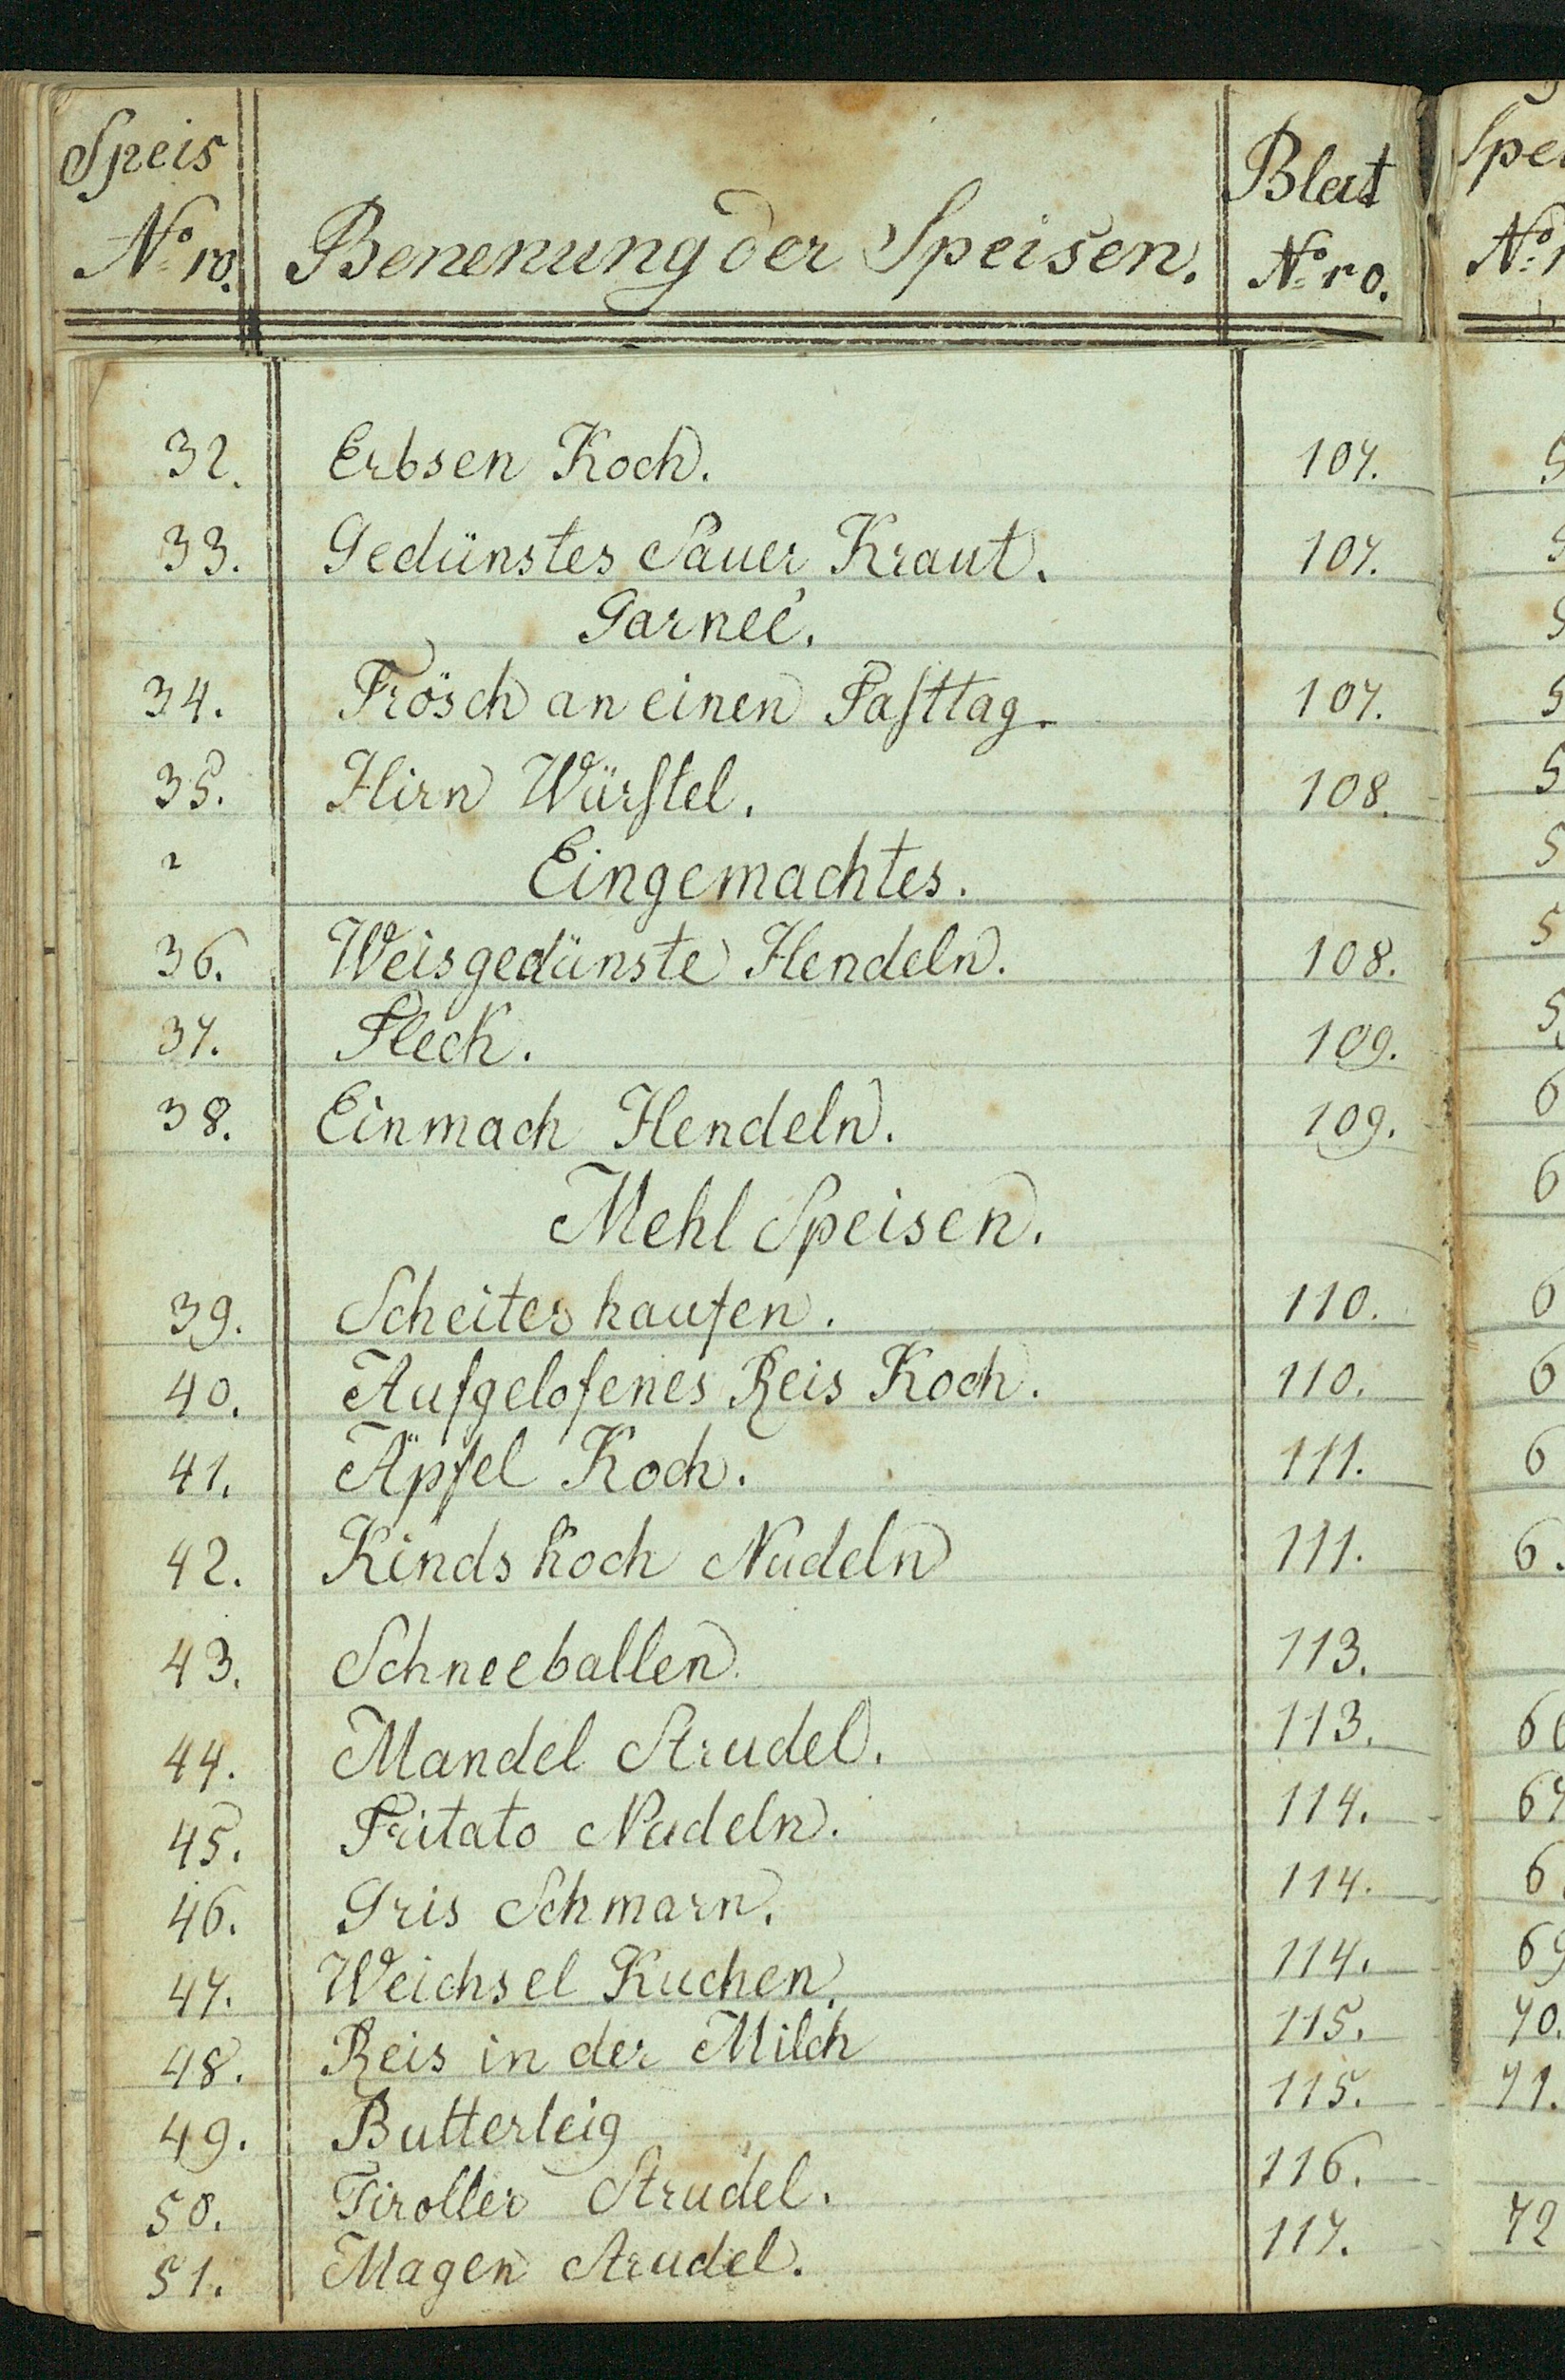 Speis Nro. Benenung der Speisen. Blat Nro.
32. Erbsen Koch. 107.
33. Gedünstes Sauer Kraut. 107.
Garneé.
34. Frösch an einen Fasttag. 107.
35. Hirn Würstel. 108.
Eingemachtes.
36. Weisgedünste Hendeln. 108.
37. Fleck. 109.
38. Einmach Hendeln. 109.
Mehl Speisen.
39. Scheiterhaufen. 110.
40. Aufgelofenes Reis Koch. 110.
41. Äpfel Koch. 111.
42. Kinds koch Nudeln 111.
43. Schneeballen. 113.
44. Mandel Strudel. 113.
45. Fritato Nudeln. 114.
46. Gris Schmarn. 114.
47. Weichsel Kuchen. 114.
48. Reis in der Milch 115.
49. Butterteig 115.
50. Tiroller Strudel. 116.
51. Magen Strudel. 117.
69
70.
71.
72